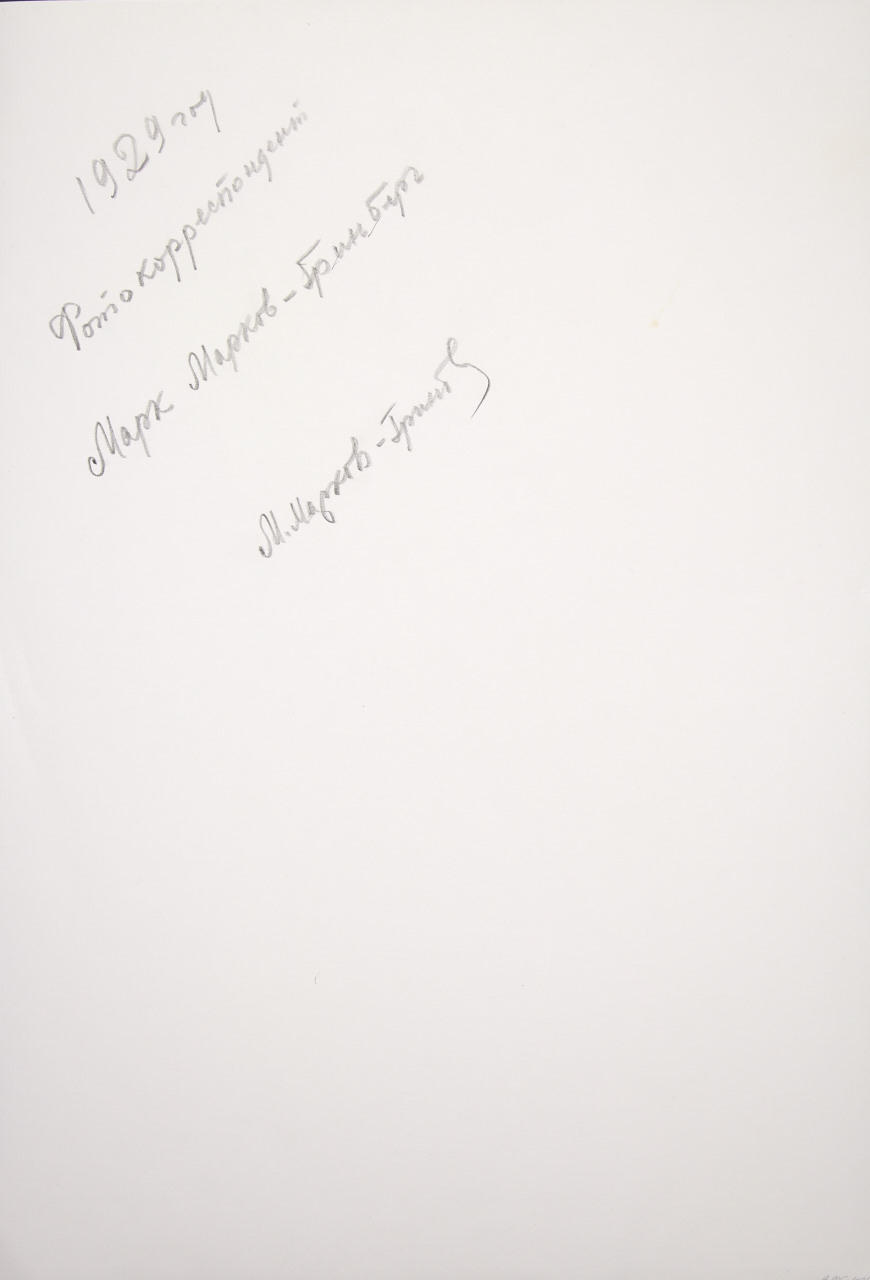 1929 год
Фотокорреспондент
Марк Марков-Гринберг
М. Марков-Гринб